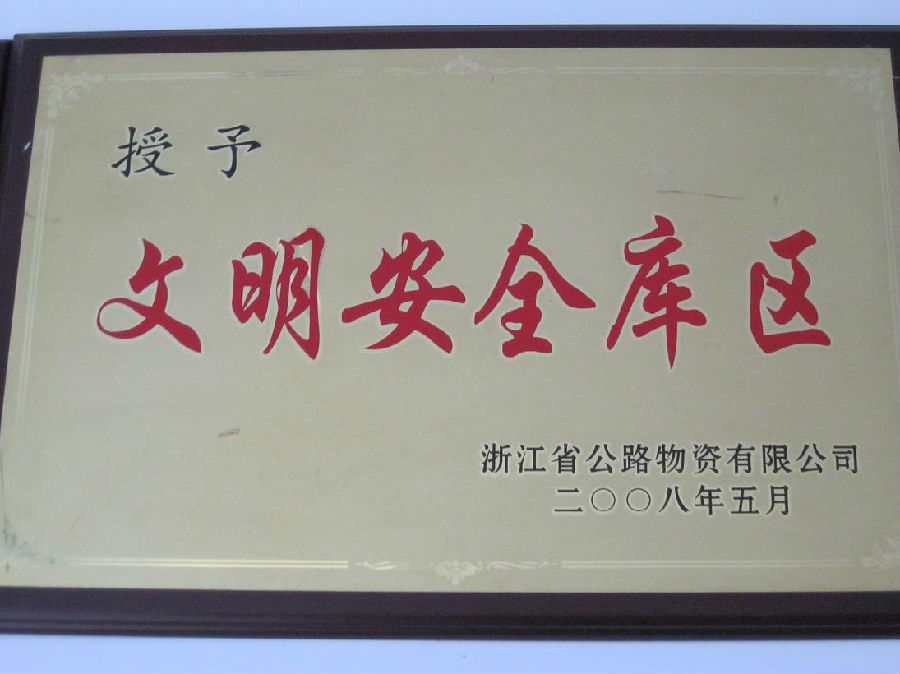 授予
文明安全库区
浙江省公路物资有限公司
二〇〇八年五月